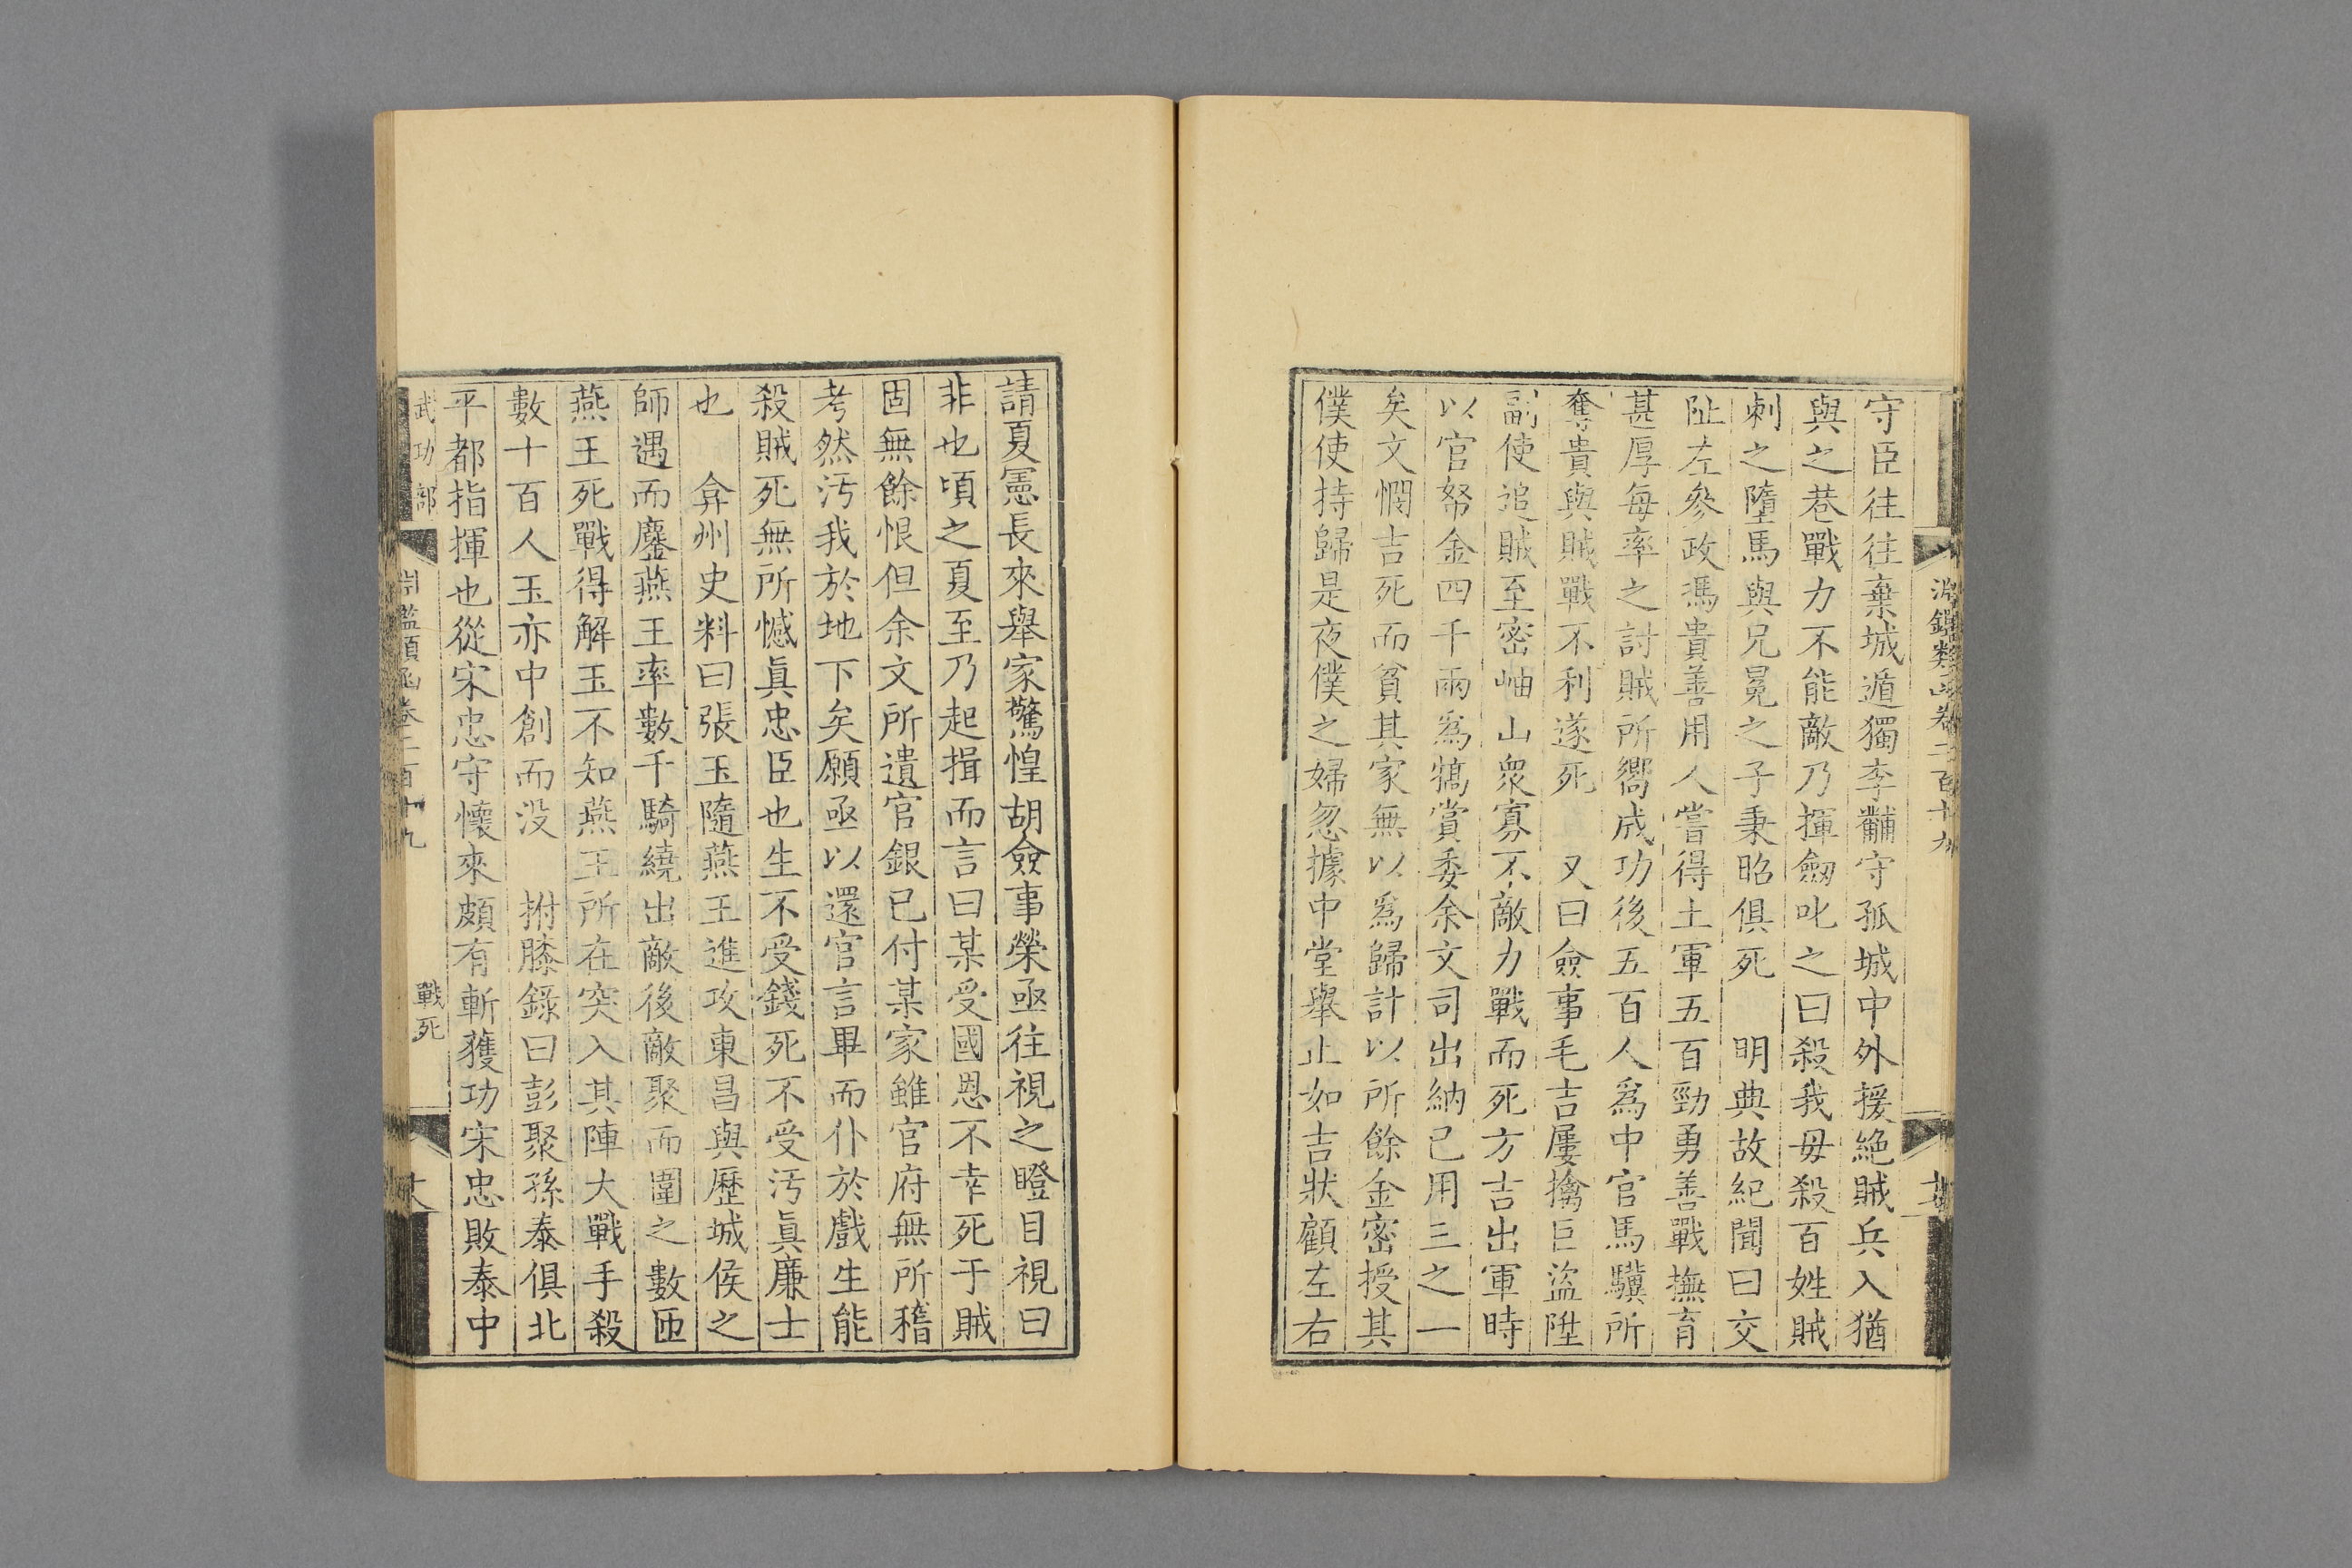 淵鑑類函卷二百十九
守臣往往棄城遁獨李黼守孤城中外援絶賊兵入猶
與之巷戰力不能敵乃揮劔叱之曰殺我毋殺百姓賊
刺之墮馬與兄冕之子秉昭俱死　明典故紀聞曰交
阯左參政馮貴善用人嘗得土軍五百勁勇善戰撫育
甚厚每率之討賊所嚮成功後五百人爲中官馬騏所
奪貴與賊戰不利遂死　又曰僉事毛吉屢擒巨盜陞
副使追賊至密岫山衆寡不敵力戰而死方吉出軍時
以官帑金四千兩爲犒賞委余文司出納已用三之一
矣文憫吉死而貧其家無以爲歸計以所餘金密授其
僕使持歸是夜僕之婦忽據中堂舉止如吉狀顧左右
請夏憲長來舉家驚惶胡僉事榮亟往視之瞪目視曰
非也頃之夏至乃起揖而言曰某受國恩不幸死于賊
固無餘恨但余文所遺官銀已付某家雖官府無所稽
考然汚我於地下矣願亟以還官言畢而仆於戲生能
殺賊死無所憾眞忠臣也生不受錢死不受汚眞廉士
也　弇州史料曰張玉隨燕王進攻東昌與歷城侯之
師遇而鏖燕王率數千騎繞出敵後敵聚而圍之數匝
燕王死戰得解玉不知燕王所在突入其陣大戰手殺
數十百人玉亦中創而没　拊膝錄曰彭聚孫泰俱北
平都指揮也從宋忠守懷來頗有斬獲功宋忠敗泰中
武功部　淵鑑類函卷二百十九　戰死　十八